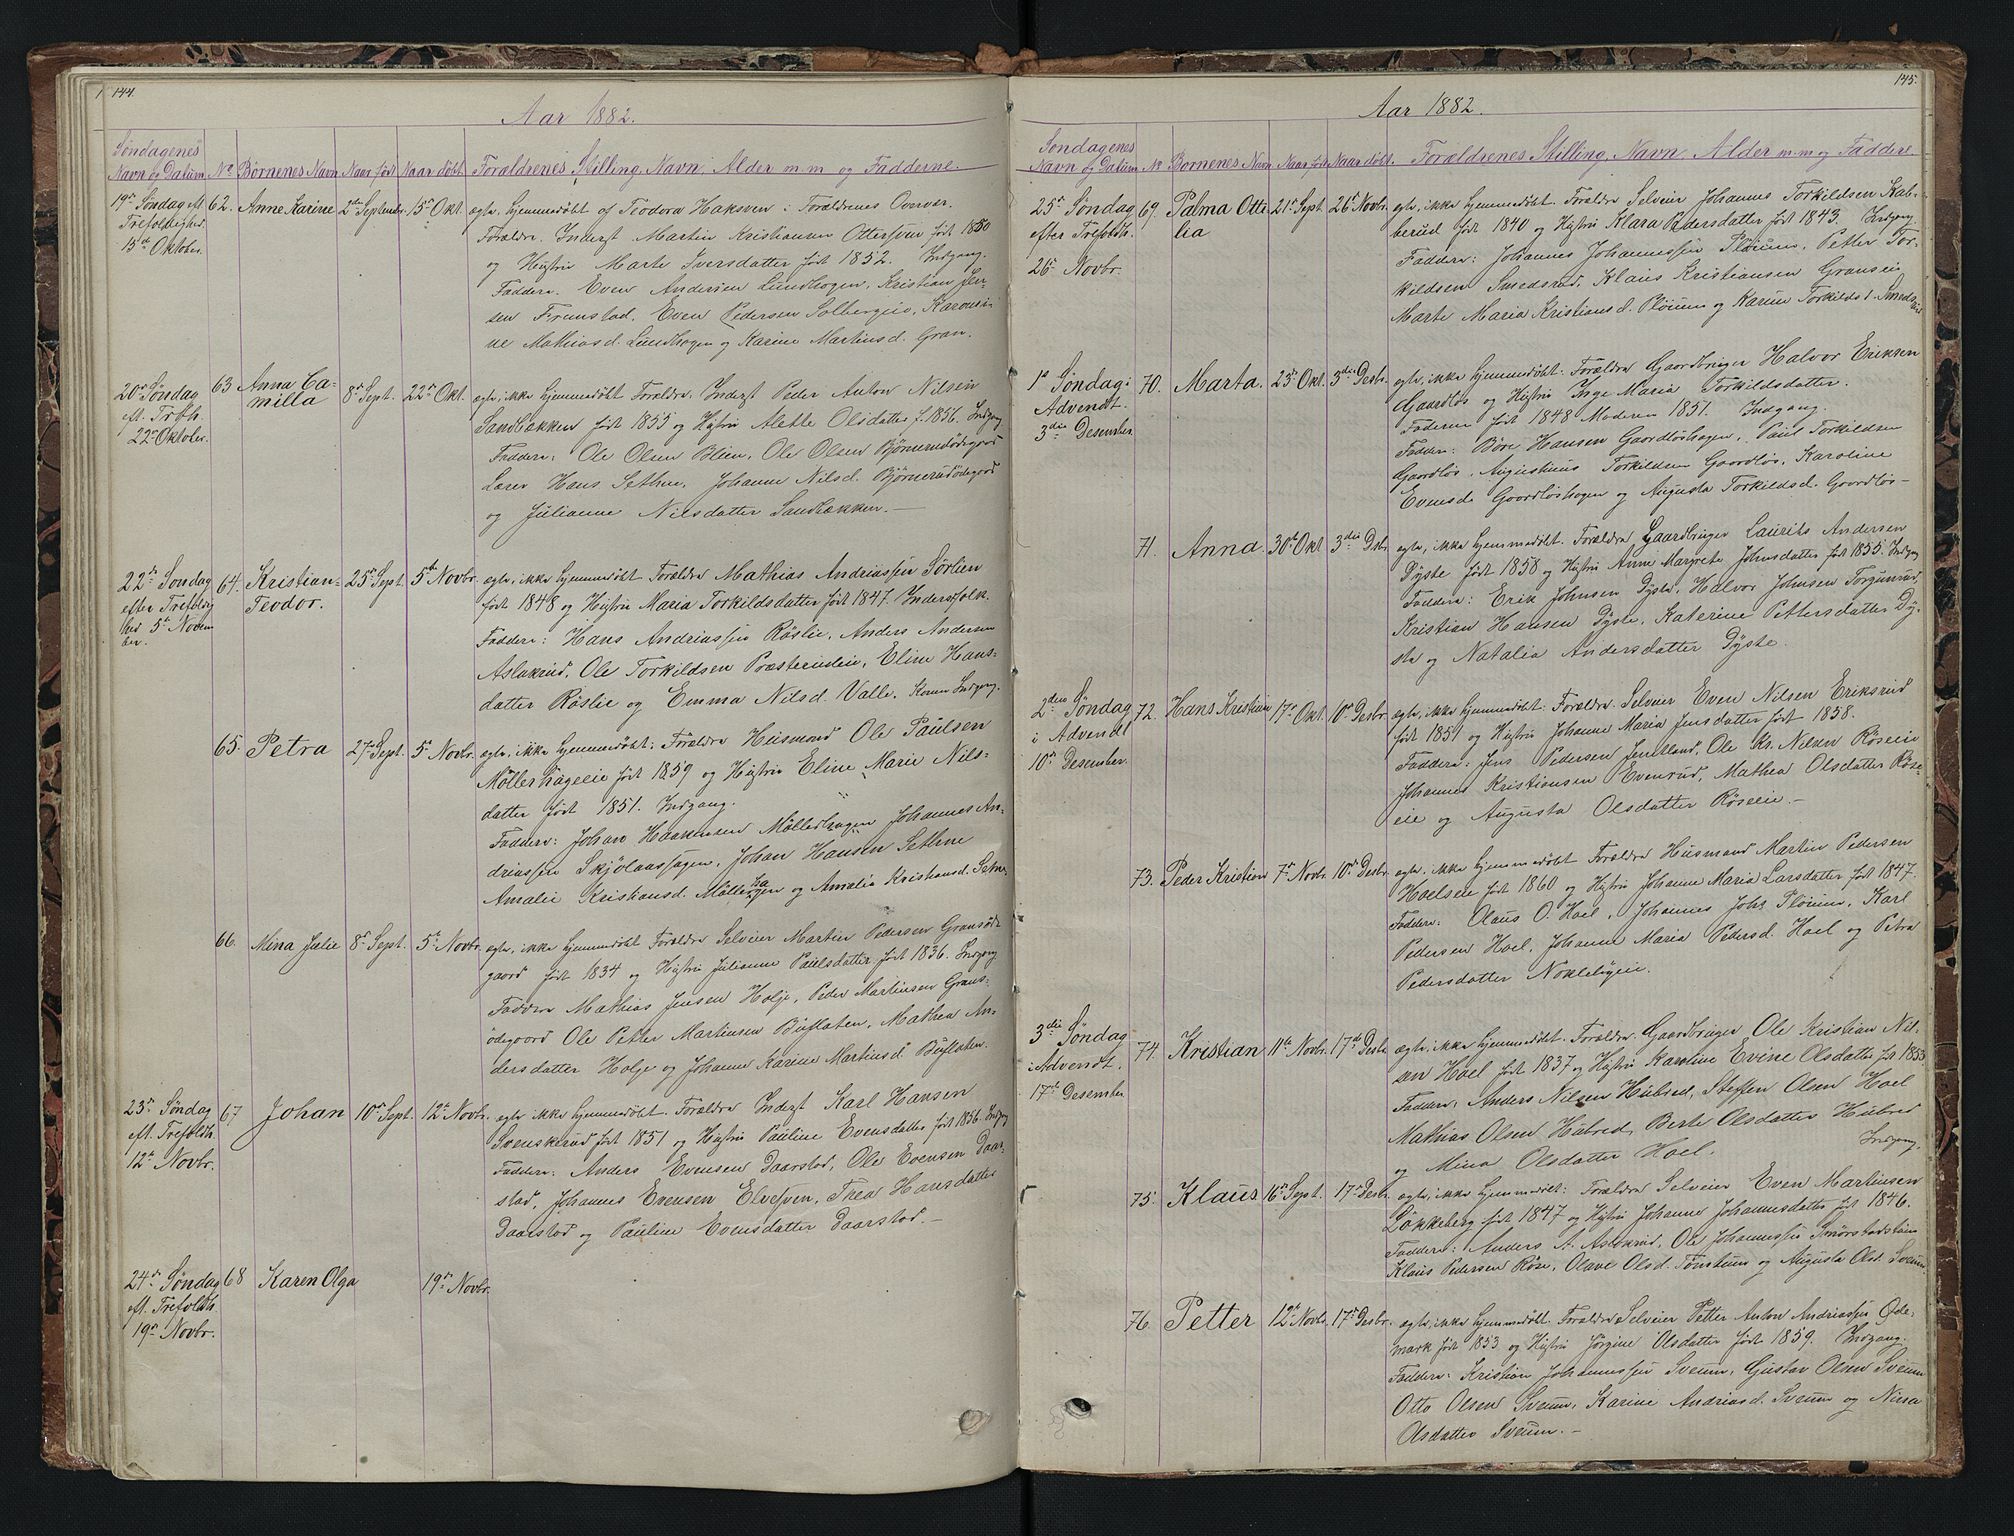 144.
Aar 1882.
Søndagenes
Navn og Datum No Børnenes Navn Naar født Naar døbt Forældrenes Stilling, Navn, Alder m.m og Fadderne.
19de Søndag eft
Trefoldighed.
15de Oktober.
62. Anne Karine 2den September 15de Okt.
ægte, hjemmedøbt af Teodora Haksven i Forældrenes Overvær.
Forældre. Inderst Martin Kristiansen Ottersven født 1850
og Hustru Marte Iversdatter født 1852. Indgang.
Faddere. Even Andersen Lundhagen, Kristian Jen-
sen Framstad, Even Pedersen Solbergeie, Karensi-
ne Mathiasd. Lundhagen og Karine Martinsd. Gran.
20de Søndag
eft. Trefh.
22de Oktober.
63 Anna Ca-
milla 8de Sept. 22de Okt.
ægte, ikke hjemmedøbt Forældre. Inderst Peder Anton Nilsen
Sandbækken født 1855 og Hustru Alette Olsdatter f. 1856. Indgang
Faddere: Ole Olsen Blien, Ole Olsen Bjørnerudødegaard
Lærer Hans Sethne, Johanne Nilsd. Bjørnerudødegaard
og Julianne Nilsdatter Sandbækken.—
22de Søndag
efter Trefoldig
hed 5te Novem
ber.
64. Kristian-
Teodor. 25de Sept. 5te Novbr.
ægte, ikke hjemmedøbt Forældre Mathias Andriassen Sørlien
født 1848 og Hustru Maria Torkildsdatter født 1847. Inderstfolk.
Faddere: Hans Andriassen Røslie, Anders Andersen
Aslakrud, Ole Torkildsen Præsterudeie, Eline Hans-
datter Røslie og Emma Nilsd. Valle. Konen Indgang.
65. Petra 27de Sept. 5te Novbr.
ægte, ikke hjemmedøbt: Forældre Husmand Ole Paulsen
Møllerhageeie født 1859 og Hustru Eline Marie Nils-
datter født 1851. Indgang.
Faddere: Johan Haakensen Møllerhagen Johannes An-
driassen Skjølaashagen, Johan Hansen Sethne
Amalie Kristiansd. Møllerhagen og Amalia Kristiansd. Setne
66. Mina Julie 8de Sept. 5te Novbr.
ægte, ikke hjemmedøbt Forældre Selveier Martin Pedersen Gransøde
gaard født 1834 og Hustru Julianne Paulsdatter født 1836. Indgang
Faddere Mathias Jensen Holje, Peder Martinsen Grans-
ødegaard Ole Petter Martinsen Bjøflaten, Mathea An-
dersdatter Holje og Johanne Karine Martinsd Bøflaten.
23de Søndag
eft. Trefoldh.
12te Novbr.
67 Johan 10de Sept. 12te Novbr.
ægte ikke hjemmedøbt. Forældre Inderst Karl Hansen
Svenskerud født 1851 og Hustru Pauline Evensdatter født 1856 Indgang
Faddere: Anders Evensen Daarstad, Ole Evensen Daar-
stad, Johannes Evensen Elvesven, Thea Hansdatter
Daarstad og Pauline Evensdatter Daarstad.—
24de Søndag
eft. Trefoldh.
19de Novbr.
68 Karen Olga 19de Novbr.
145.
Aar 1882.
Søndagenes
Navn og Datum No Børnenes Navn Naar født Naar døbt Forældrenes Stilling, Navn, Alder m.m og Faddere
25de Søndag
efter Trefoldh.
26de Novbr.
69. Palma Otte
lia 21de Sept. 26de Novbr.
ægte, ikke hjemmedøbt. Forældre Selveier Johannes Torkildsen Kab-
berud født 1840 og Hustru Klara Pedersdatter født 1843. Indgang
Faddere: Johannes Johannessen Pløium, Petter Tor-
kildsen Smedsrud, Klaus Kristiansen Granseie
Marte Maria Kristiansd. Pløium og Karine Torkildsd. Smedsrud
1ste Søndag i
Advendt.
3die Desember
70. Marta. 25de Okt. 3die Desbr.
ægte, ikke hjemmedøbt. Forældre Gaardbruger Halvor Eriksen
Gaardløs og Hustru Inge Maria Torkildsdatter.
Faderen født 1848 Moderen 1851. Indgang.
Faddere: Børe Hansen Gaardløshagen, Paul Torkildsen
Gaardløs, Augustinus Torkildsen Gaardløs, Karoline
Evensd. Gaardløshagen og Augusta Torkildsd. Gaardløs—
71. Anna. 30te Okt 3die Dsbr.
ægte, ikke hjemmedøbt. Forældre Gaardbruger Laurits Andersen
Dyste født 1858 og Hustru Anne Margrete Johnsdatter født 1855. Indgang
Faddere: Erik Johnsen Dyste, Halvor Johnsen Torgunrud,
Kristian Hansen Dyste, Katerine Pettersdatter Dy-
ste og Natalia Andersdatter Dyste.
2den Søndag
i Advendt
10de Desember.
72. Hans Kristian 17de Okt. 10de Desbr.
ægte, ikke hjemmedøbt: Forældre, Selveier Even Nilsen Eriksrud
født 1851 og Hustru Johanne Maria Jensdatter født 1858.
Faddere: Jens Pedersen Jentland, Ole Kr. Nilsen Røseeie
Johannes Kristiansen Evenrud, Mathea Olsdatter Røse-
eie og Augusta Olsdatter Røseeie.—
73. Peder Kristian 7de Novbr. 10de Desbr.
ægte. ikke hjemmedøbt Forældre Husmand Martin Pedersen
Hoelseie født 1860 og Hustru Johanne Maria Larsdatter født 1847.
Faddere: Olaus O. Hoel, Johannes Johs. Pløium, Karl
Pedersen Hoel, Johanne Maria Pedersd. Hoel og Petra
Pedersdatter Nøklebyeie.
3die Søndag
i Advendt.
17de Desember
74. Kristian 11te Novbr. 17de Desbr
ægte, ikke hjemmedøbt. Forældre. Gaardbruger Ole Kristian Nil-
sen Hoel født 1837 og Hustru Karoline Evine Olsdatter før 1853
Faddere: Anders Nilsen Hubred, Steffen Olsen Hoel
Mathias Olsen Hubred, Berte Olsdatter Hubred
og Mina Olsdatter Hoel. Indgang.
75. Klaus 16de Sept. 17de Desbr.
ægte, ikke hjemmedøbt: Forældre Selveier Even Martinsen
Løkkeberg født 1847 og Hustru Johanne Johannesdatter født 1846.
Faddere: Anders A. Aslakrud, Ole Johannessen Smørstadstuen
Klaus Pedersen Røse, Olave Olsd. Tønstuen og Augusta Olsd. Sveum
76. Petter 12te Novbr. 17de Desbr.
ægte, ikke hjemmedøbt. Forældre Selveier Petter Anton Andriassen Øde-
mark født 1853 og Hustru Jørgine Olsdatter født 1859. Indgang.
Faddere: Kristian Johannessen Sveum, Gustav Olsen Sveum
Otto Olsen Sveum, Karine Andriasd. Sveum og Nina
Olsdatter Sveum.—